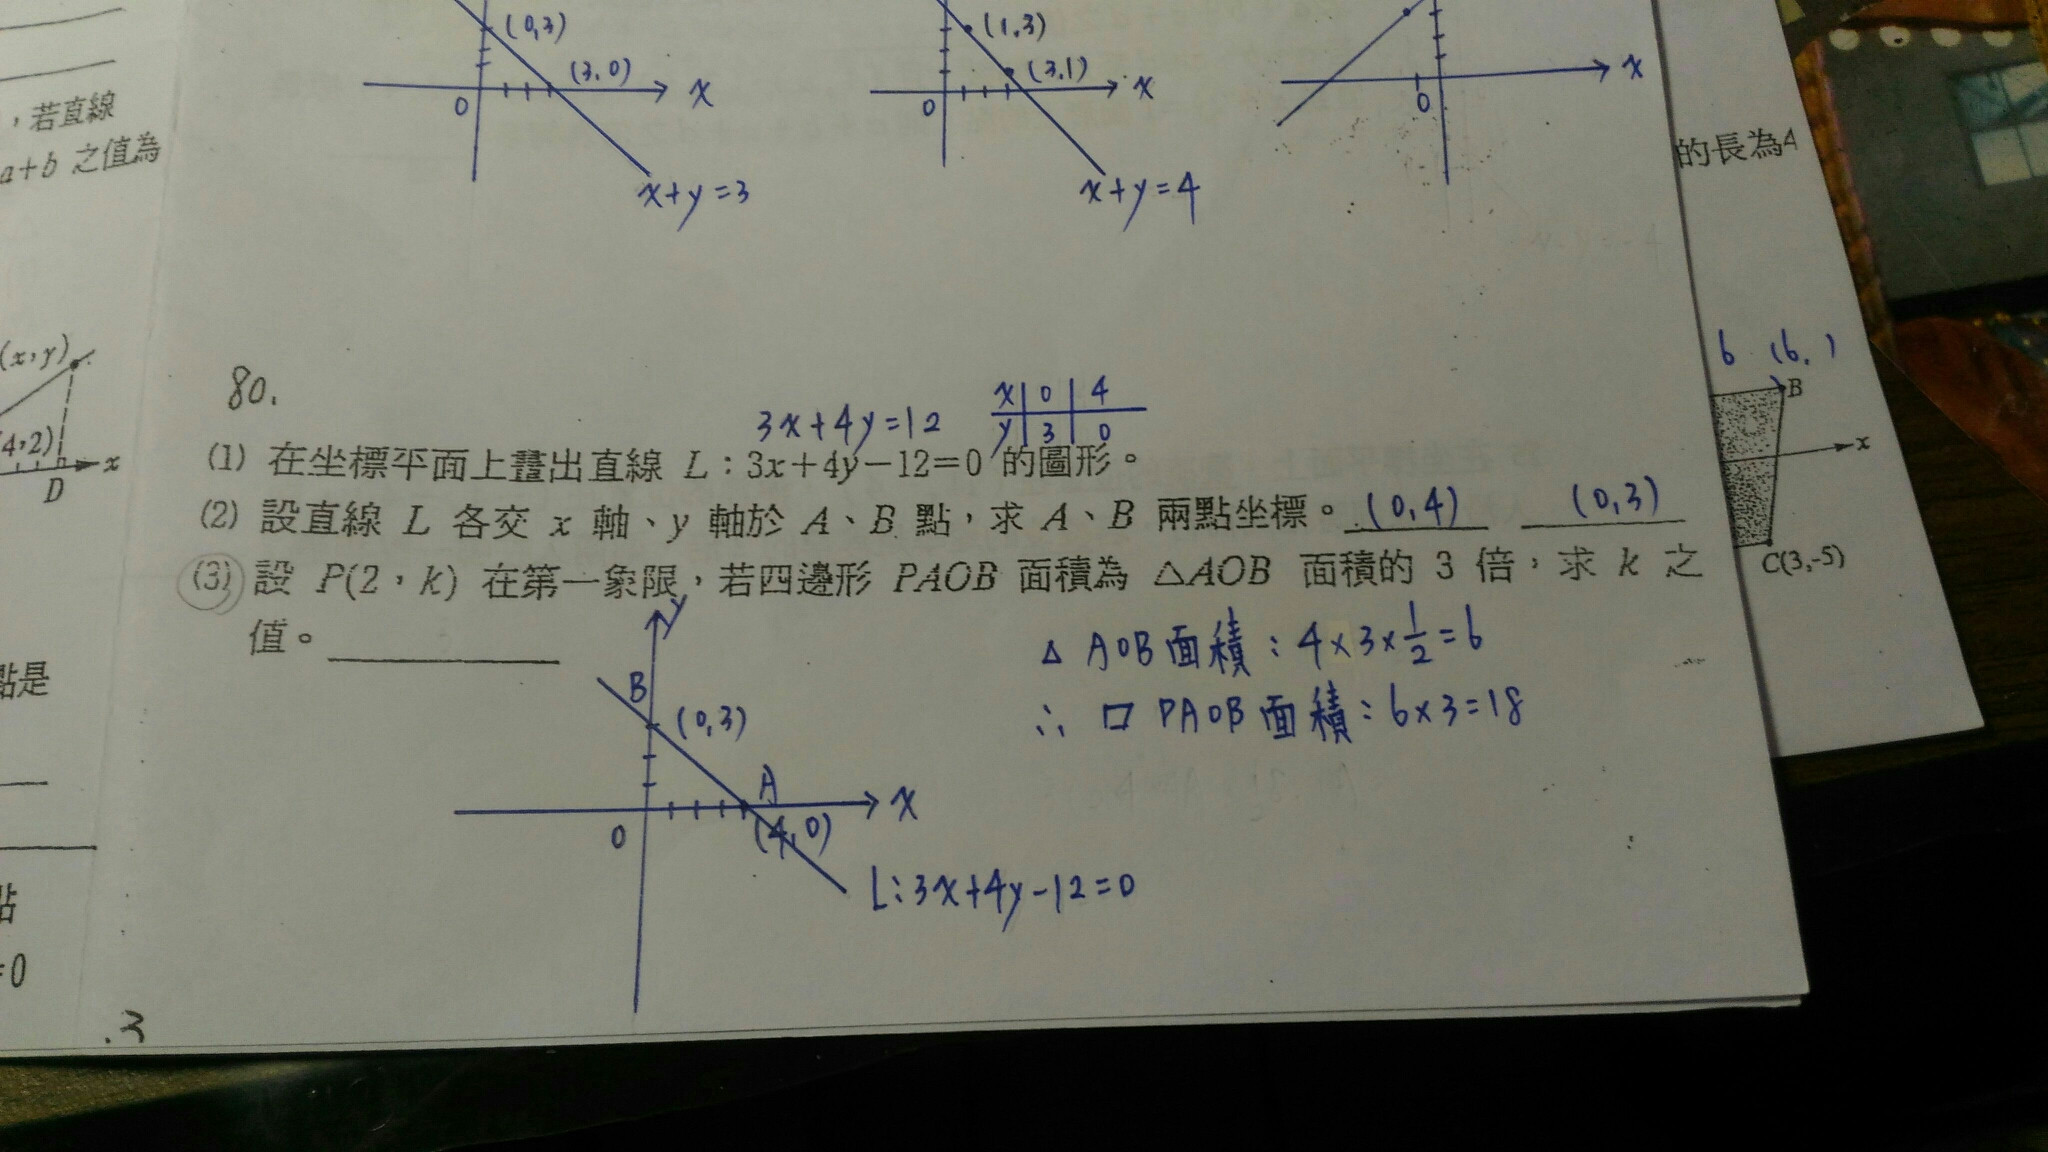 (0,3)
(3,0)
x
0
x+y=3
(1,3)
(3,1)
x
0
x+y=4
x
0
，若直線
a+b 之值為
的長為4
(x,y)
4,2)
x
D
6 (6, )
B
x
C(3,-5)
80.
3x+4y=12
x 0 4
y 3 0
(1) 在坐標平面上畫出直線 L：3x+4y−12=0 的圖形。
(2) 設直線 L 各交 x 軸、y 軸於 A、B 點，求 A、B 兩點坐標。 (0,4) (0,3)
(3) 設 P(2，k) 在第一象限，若四邊形 PAOB 面積為 △AOB 面積的 3 倍，求 k 之
值。
y
B
(0,3)
A
x
0
(4,0)
L:3x+4y-12=0
△ AOB面積：4×3×1/2=6
∴ □ PAOB面積：6×3=18
點是
點
=0
.3